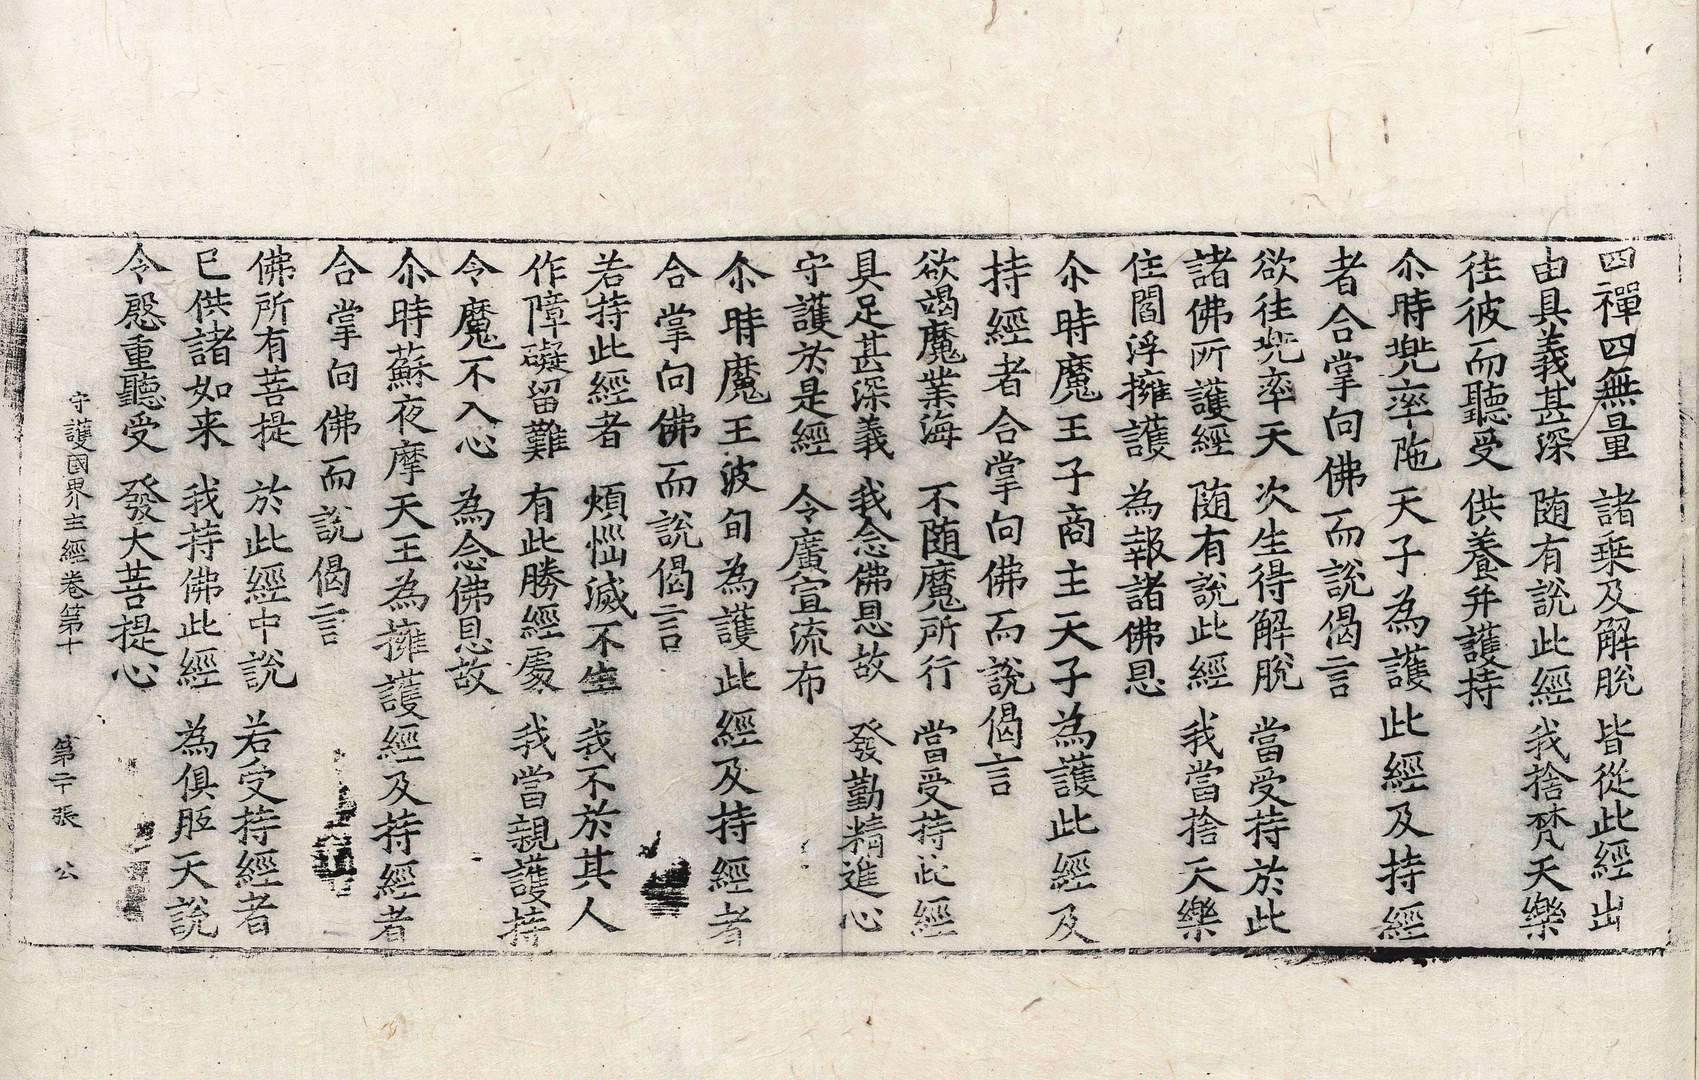 四禪四無量　諸乘及解脫　皆從此經出
由具義甚深　随有說此經　我捨梵天樂
往彼而聽受　供養并護持
尒時兠率陁天子為護此經及持經
者合掌向佛而說偈言
欲往兠率天　次生得解脫　當受持於此
諸佛所護經　随有說此經　我當捨天樂
住閻浮擁護　為報諸佛恩
尒時魔王子商主天子為護此經及
持經者合掌向佛而說偈言
欲竭魔業海　不随魔所行　當受持此經
具足甚深義　我念佛恩故　發勤精進心
守護於是經　令廣宣流布
尒時魔王波旬為護此經及持經者
合掌向佛而說偈言
若持此經者　煩惱滅不生　我不於其人
作障礙留難　有此勝經處　我當親護持
令魔不入心　為念佛恩故
尒時蘇夜摩天王為擁護經及持經者
合掌向佛而說偈言
佛所有菩提　於此經中說　若受持經者
已供諸如来　我持佛此經　為俱胝天說
令慇重聽受　發大菩提心
守護國界主經卷第十　第二十張　公